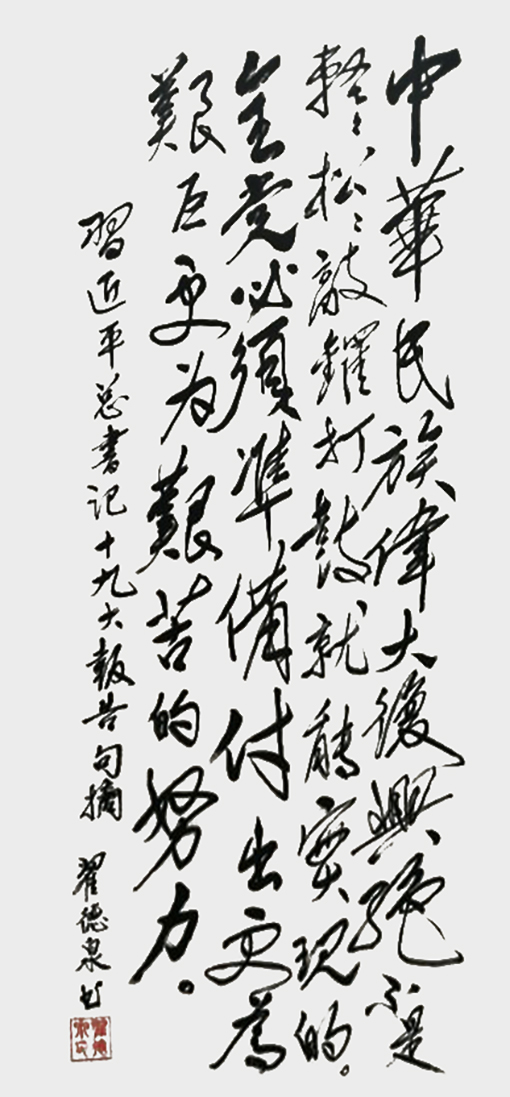 中華民族偉大復興絕不是
輕輕松松敲鑼打鼓就能實現的。
全党必須準備付出更為
艱巨更为艱苦的努力。
習近平总書记十九大報告句摘
翟德泉书